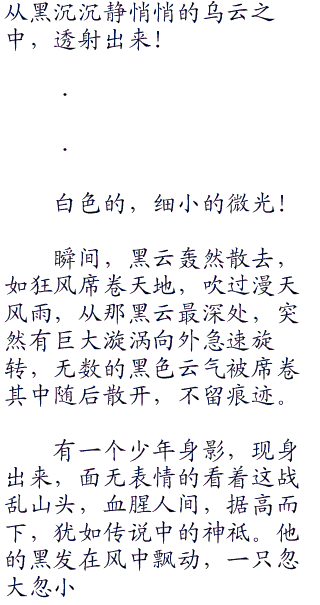 从黑沉沉静悄悄的乌云之
中，透射出来！
.
.
白色的，细小的微光！
瞬间，黑云轰然散去，
如狂风席卷天地，吹过漫天
风雨，从那黑云最深处，突
然有巨大漩涡向外急速旋
转，无数的黑色云气被席卷
其中随后散开，不留痕迹。
有一个少年身影，现身
出来，面无表情的看着这战
乱山头，血腥人间，据高而
下，犹如传说中的神祇。他
的黑发在风中飘动，一只忽
大忽小